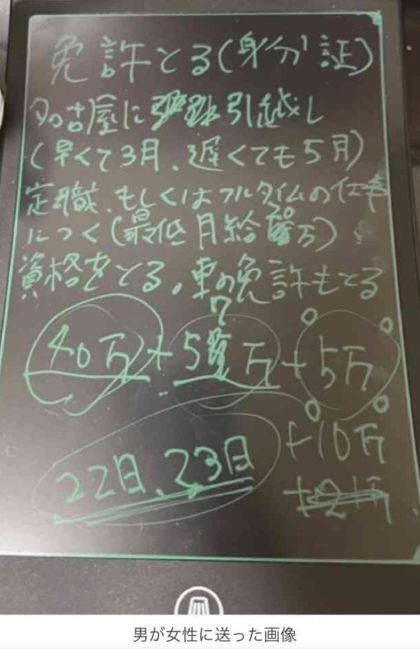 免許とる(身分証)
名古屋に引越し
(早くて3月、遅くても5月)
定職、もしくはフルタイムの仕事
につく(最低月給万)
資格をとる。車の免許もとる
40万+57万+5万
+10万
22日、23日
男が女性に送った画像